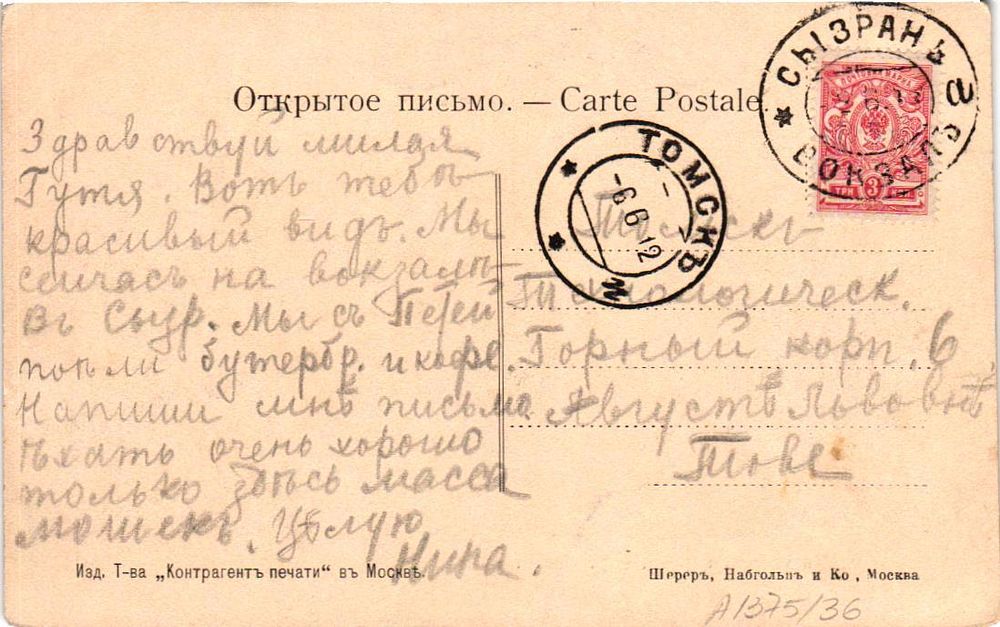 Открытое письмо. — Carte Postale.
СЫЗРАНЬ 2
ВОКЗАЛЪ
ПОЧТОВАЯ МАРКА
ТРИ 3
ТОМСКЪ
-6.6.12
Здравствуй милая
Гутя. Вотъ тебѣ
красивый видъ. Мы
сейчасъ на вокзалѣ
въ Сызр. Мы съ Петей
поѣли бутербр. и кофе.
Напиши мнѣ письмо.
ѣхать очень хорошо
только здѣсь масса
мошекъ. Цѣлую
Нина.
Томскъ
Технологическ.
Горный корп. 6
Августѣ Львовнѣ
Тове
Изд. Т-ва „Контрагентъ печати" въ Москвѣ.
Шереръ, Набгольцъ и Ко, Москва
A1375/36